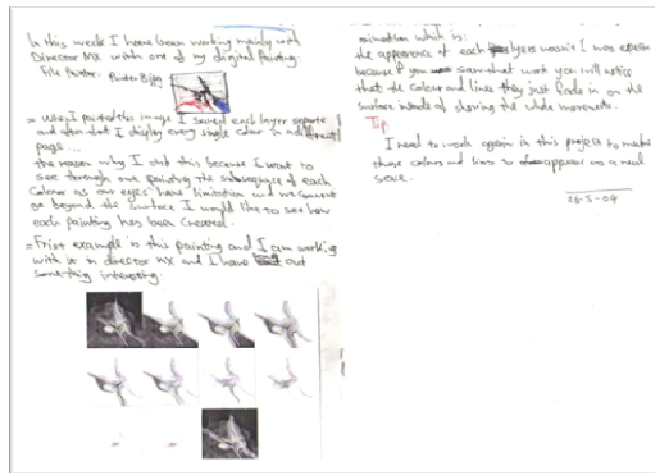 In this weeks I have been working mainly with
Director MX with one of my digital Painting.
File Painter.
= When I painted this image I saved each layer separate
and after that I display every single colour in a different
page...
the reason why I did this because I want to
see through one painting the subsequence of each
Colour as our eyes have limitation and we cannot
go beyond the surface I would like to see how
each painting has been created.
= Frist example is this painting and I am working
with it in director MX and I have out
something interesting.
animation which is:
the appearance of each layers wasn't I was
because if you saw that work you will notice
that the colour and lines they just fade in on the
surface instead of showing the whole movements.
Tip
I need to work again in this project to make
those colours and lines to appear as a real
28-5-04